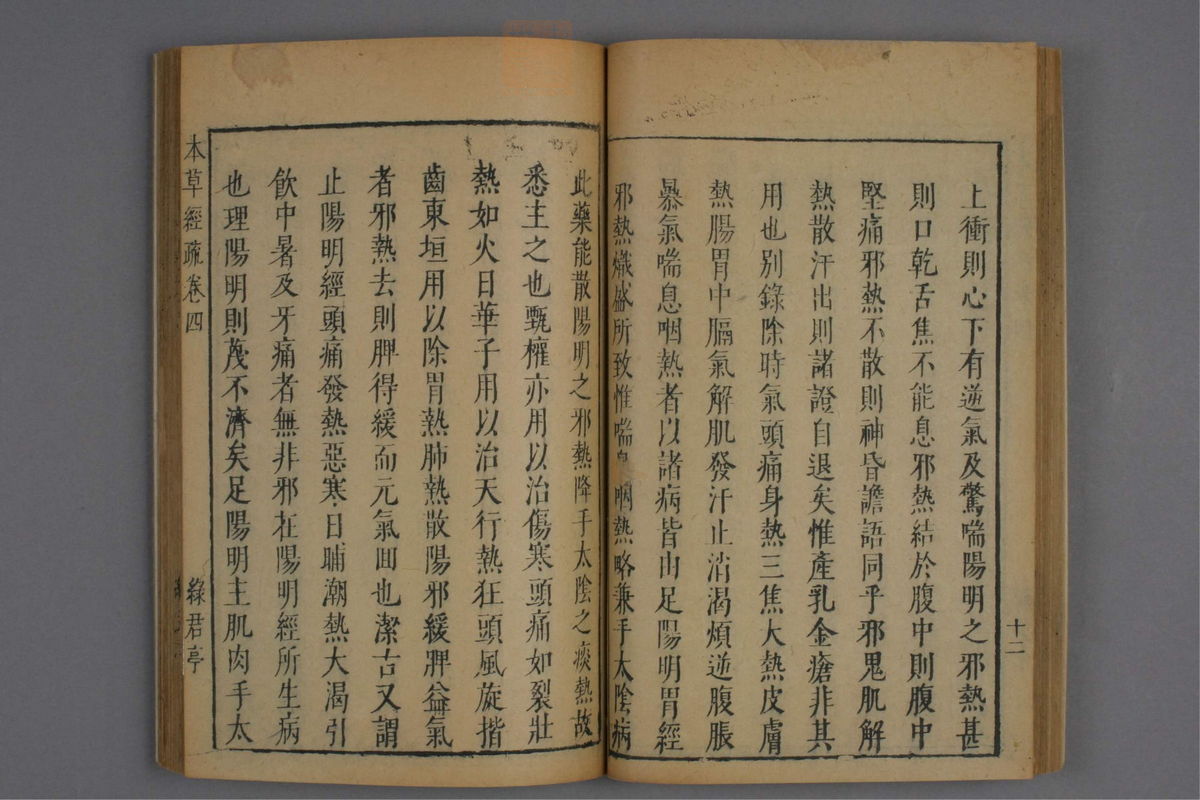 十二
上衝則心下有逆氣及驚喘陽明之邪熱甚
則口乾舌焦不能息邪熱結於腹中則腹中
堅痛邪熱不散則神昏譫語同乎邪鬼肌解
熱散汗出則諸證自退矣惟產乳金瘡非其
用也別錄除時氣頭痛身熱三焦大熱皮膚
熱腸胃中膈氣解肌發汗止消渴煩逆腹脹
暴氣喘息咽熱者以諸病皆由足陽明胃經
邪熱熾盛所致惟喘息咽熱略兼手太陰病
此藥能散陽明之邪熱降手太陰之痰熱故
悉主之也甄權亦用以治傷寒頭痛如裂壯
熱如火日華子用以治天行熱狂頭風旋揩
齒東垣用以除胃熱肺熱散陽邪緩脾益氣
者邪熱去則脾得緩而元氣回也潔古又謂
止陽明經頭痛發熱惡寒日晡潮熱大渴引
飲中暑及牙痛者無非邪在陽明經所生病
也理陽明則蔑不濟矣足陽明主肌肉手太
本草經疏卷四
綠君亭